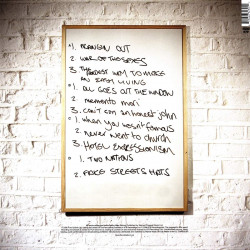 1. PRANGIN OUT
2. WAR OF THE SEXES
3. THE HARDEST WAY TO MAKE
AN EASY LIVING
1. ALL GOES OUT THE WINDOW
2. memento mori
3. can't con an honest john
1. when you wasn't famous
2. never went to church
3. HOTEL EXPRESSIONISM
1. TWO NATIONS
2. FAKE STREETS HATS